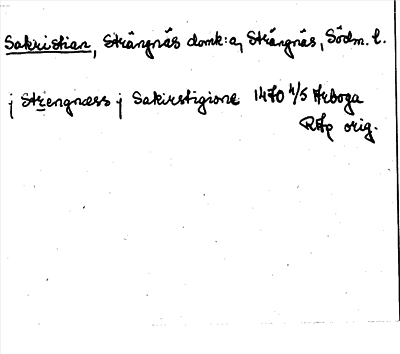 Sakristian, Strängnäs domk:a, Strängnäs, Södm. l.
j Strengnæss j Sakirstigione 1470 4/5 Arboga
RAp orig.